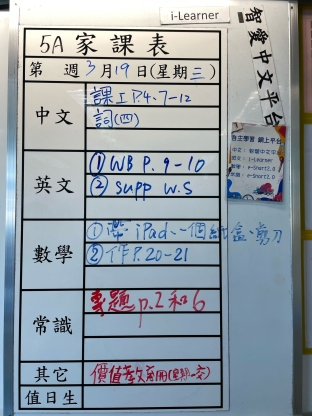 i-Learner
智愛中文平台
5A 家課表
第 週 3月19日(星期三)
中文
課工 P.4、7-12
詞(四)
英文
① WB P. 9-10
② Supp W.S
數學
① 帶 iPad、一個紙盒、剪刀
② 作P.20-21
常識
專題 p.2 和 6
其它
價值教育冊
值日生
自主學習 網上平台
i-Learner
e-Smart2.0
e-Smart2.0